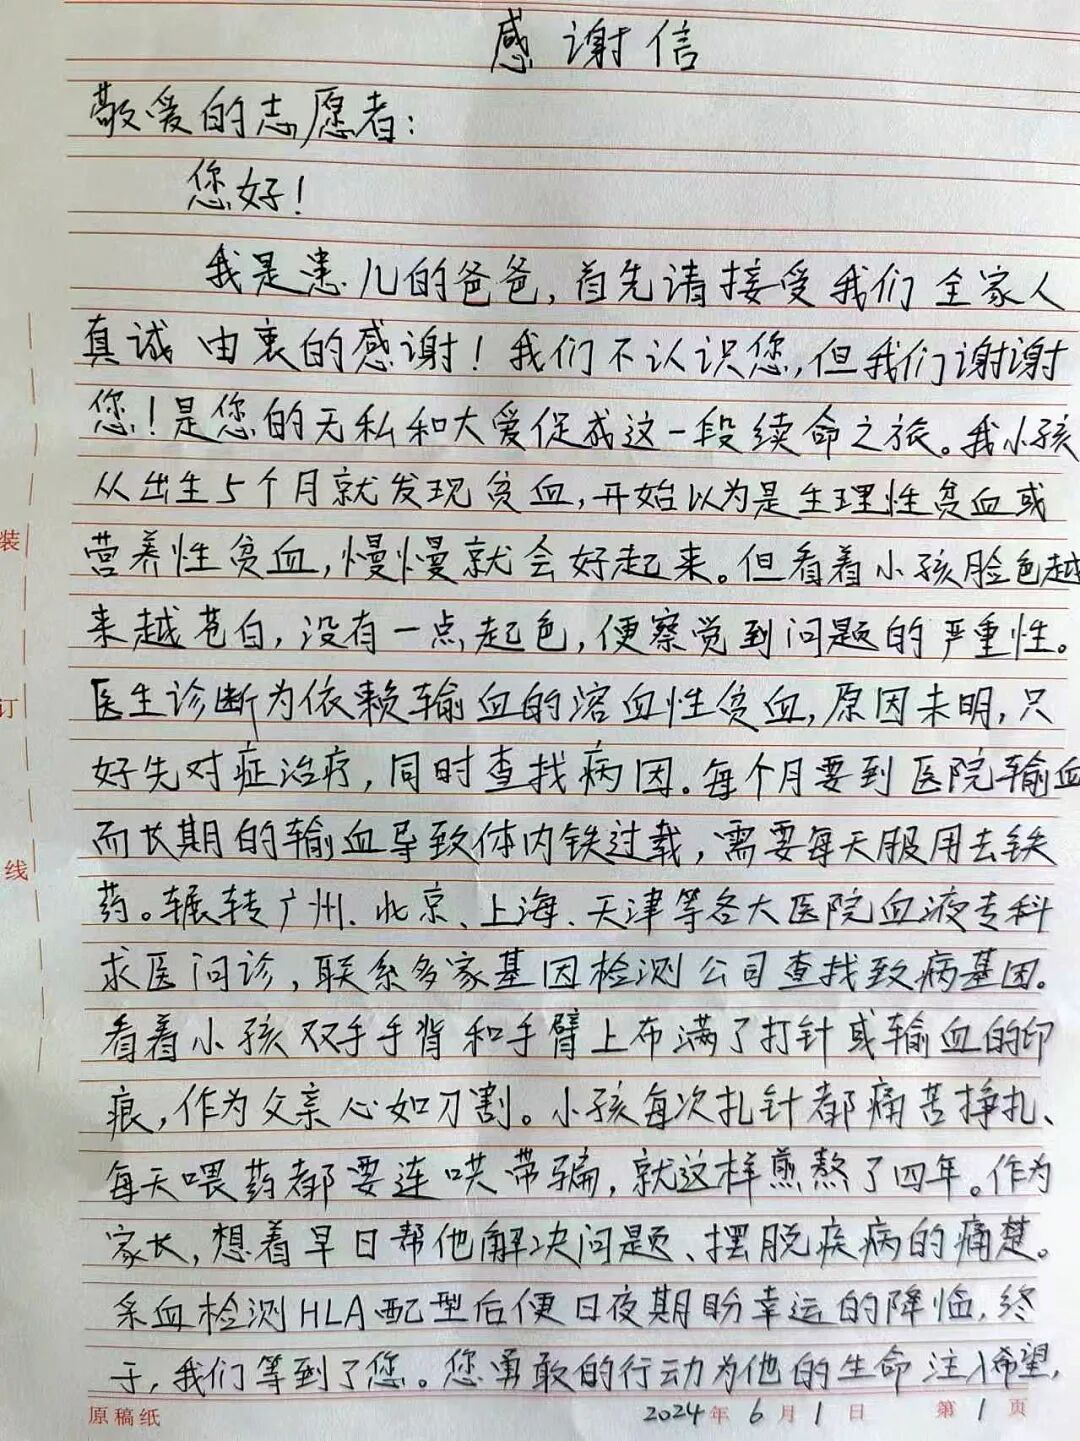 感谢信
敬爱的志愿者：
您好！
我是患儿的爸爸，首先请接受我们全家人
真诚由衷的感谢！我们不认识您，但我们谢谢
您！是您的无私和大爱促成这一段续命之旅。我小孩
从出生5个月就发现贫血，开始以为是生理性贫血或
营养性贫血，慢慢就会好起来。但看着小孩脸色越
来越苍白，没有一点起色，便察觉到问题的严重性。
医生诊断为依赖输血的溶血性贫血，原因未明，只
好先对症治疗，同时查找病因。每个月要到医院输血
而长期的输血导致体内铁过载，需要每天服用去铁
药。辗转广州、北京、上海、天津等各大医院血液专科
求医问诊，联系多家基因检测公司查找致病基因。
看着小孩双手手背和手臂上布满了打针或输血的印
痕，作为父亲心如刀割。小孩每次扎针都痛苦挣扎、
每天喂药都要连哄带骗，就这样煎熬了四年。作为
家长，想着早日帮他解决问题、摆脱疾病的痛楚。
采血检测HLA配型后便日夜期盼幸运的降临，终
于，我们等到了您。您勇敢的行动为他的生命注入希望，
装
订
线
原稿纸 2024年6月1日 第1页